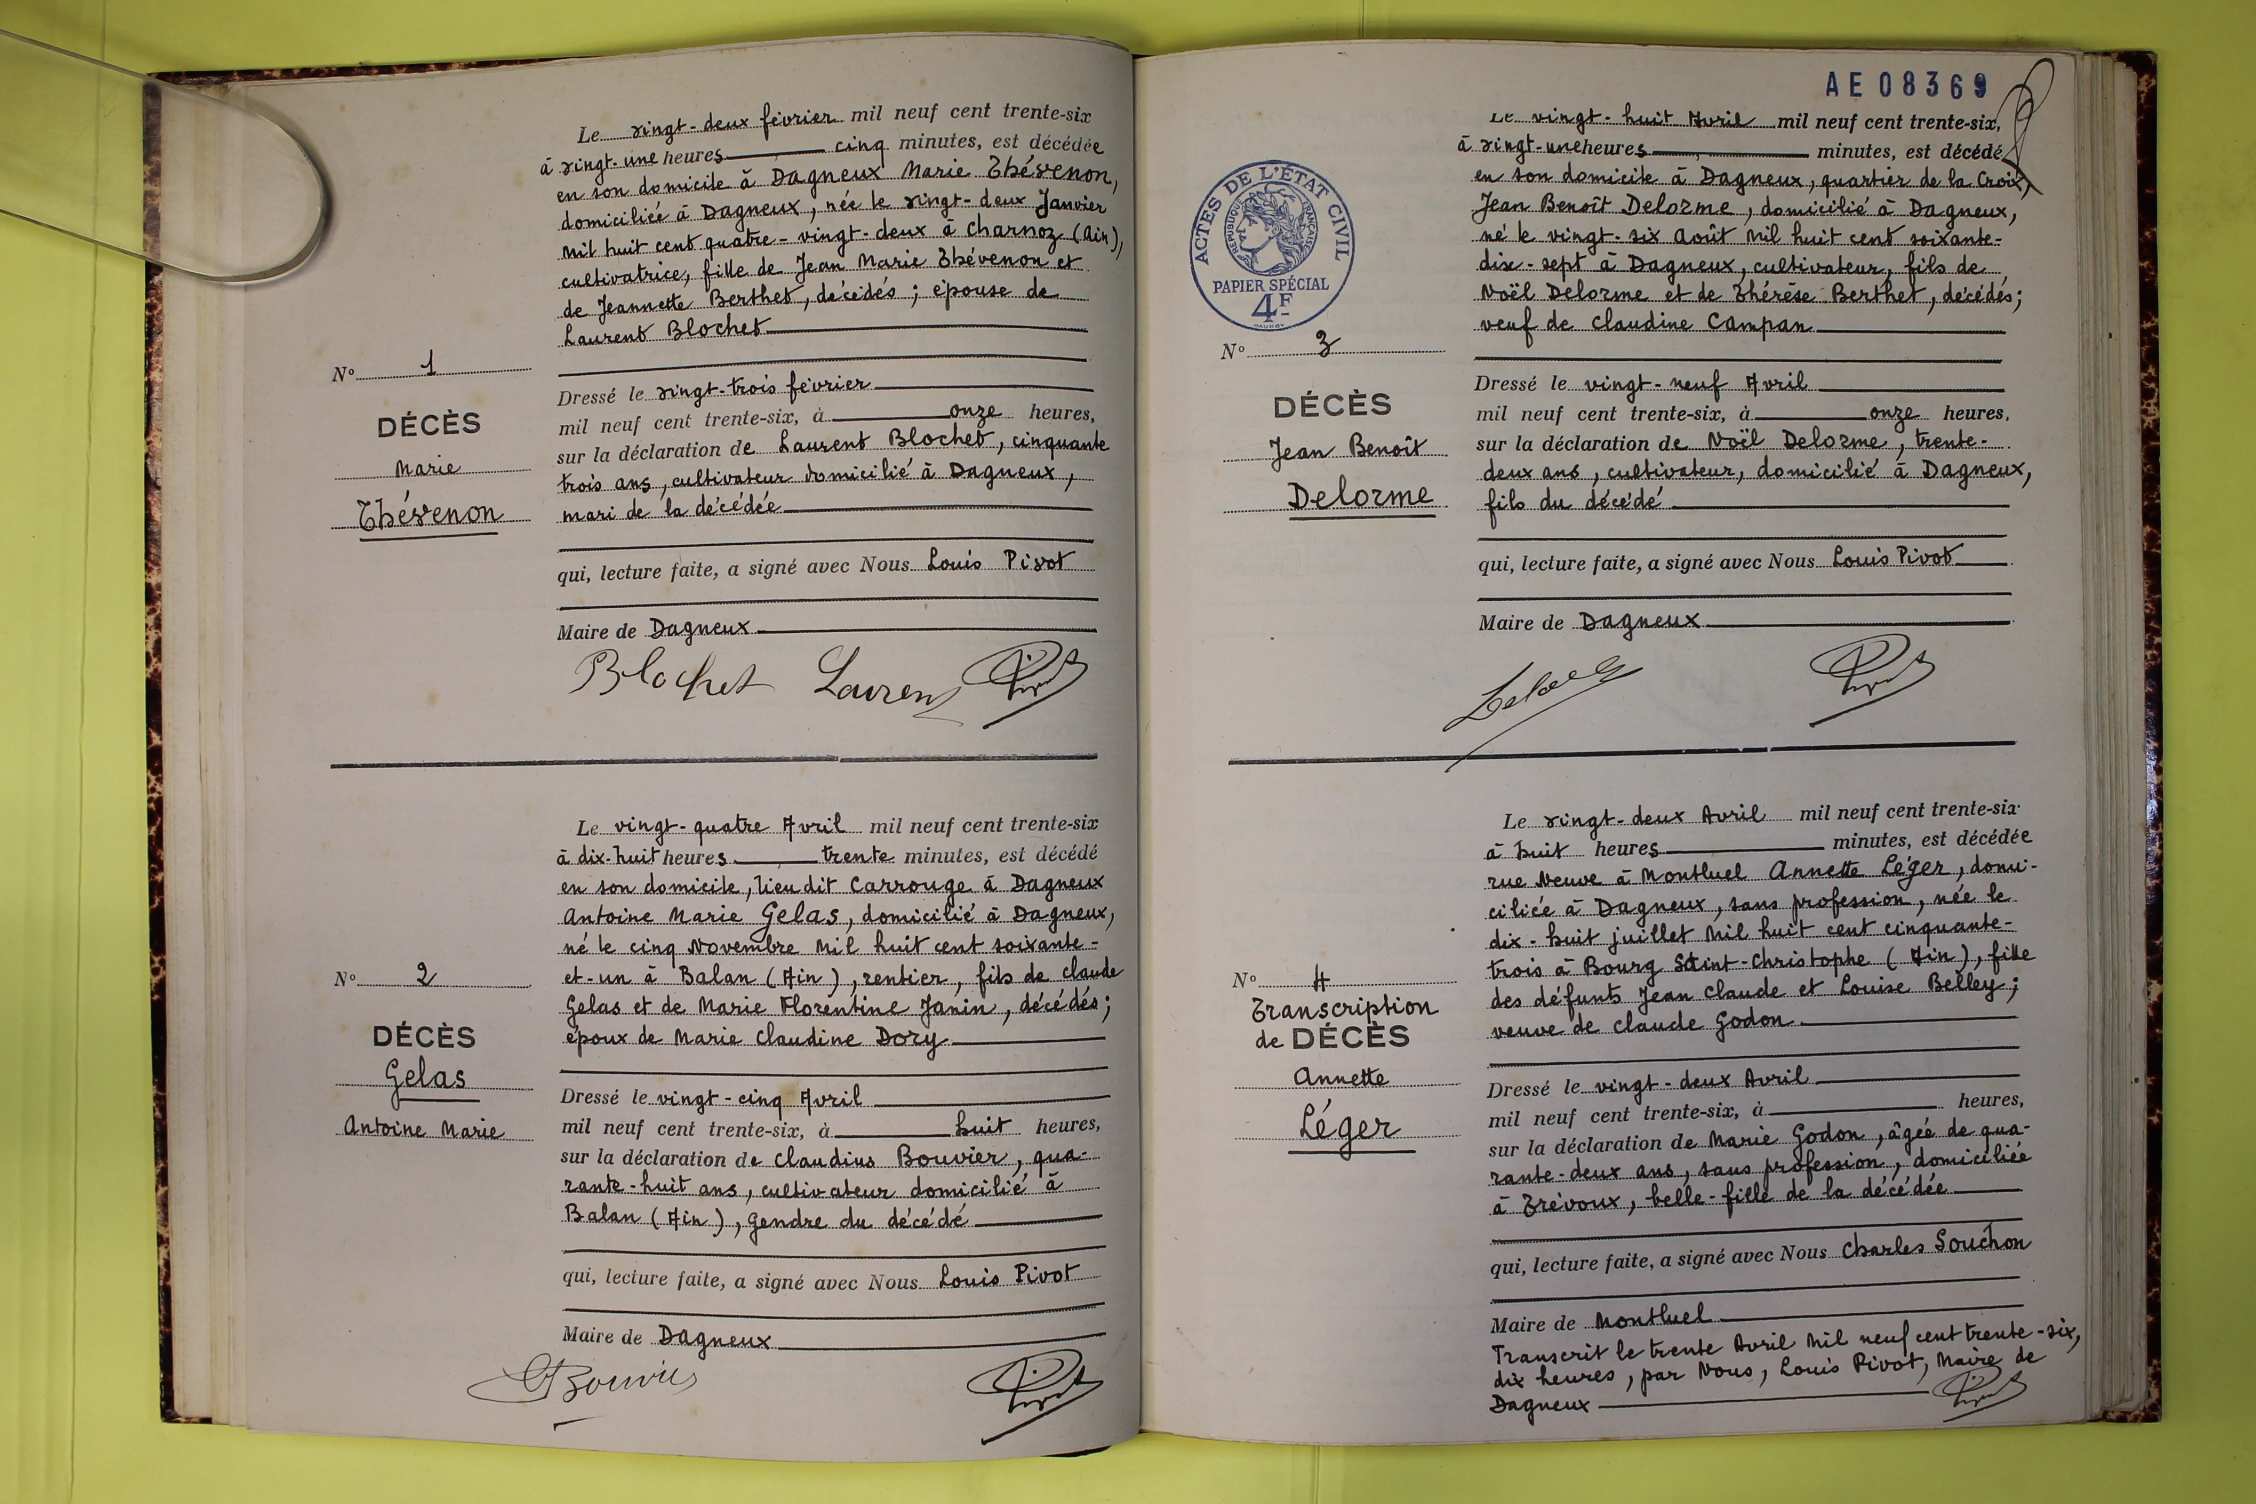 Le vingt-deux février mil neuf cent trente-six
à vingt-une heures cinq minutes, est décédée
en son domicile à Dagneux Marie Thévenon,
domiciliée à Dagneux, née le vingt-deux Janvier
mil huit cent quatre-vingt-deux à Charnoz (Ain),
cultivatrice, fille de Jean Marie Thévenon et
de Jeannette Berthet, décédés ; épouse de
Laurent Blochet
N° 1
DÉCÈS
Marie
Thévenon
Dressé le vingt-trois février
mil neuf cent trente-six, à onze heures,
sur la déclaration de Laurent Blochet, cinquante
trois ans, cultivateur domicilié à Dagneux,
mari de la décédée
qui, lecture faite, a signé avec Nous Louis Pivot
Maire de Dagneux
Blochet Laurent Pivot
Le vingt-quatre Avril mil neuf cent trente-six
à dix-huit heures trente minutes, est décédé
en son domicile, lieu dit Carrouge à Dagneux
Antoine Marie Gelas, domicilié à Dagneux,
né le cinq Novembre mil huit cent soixante-
et-un à Balan (Ain), rentier, fils de Claude
Gelas et de Marie Florentine Janin, décédés ;
époux de Marie Claudine Dory
N° 2
DÉCÈS
Gelas
Antoine Marie
Dressé le vingt-cinq Avril
mil neuf cent trente-six, à huit heures,
sur la déclaration de Claudius Bouvier, qua-
rante-huit ans, cultivateur domicilié à
Balan (Ain), gendre du décédé
qui, lecture faite, a signé avec Nous Louis Pivot
Maire de Dagneux
Bouvier Pivot
AE 08369
Le vingt-huit Avril mil neuf cent trente-six,
à vingt-une heures minutes, est décédé
en son domicile à Dagneux, quartier de la Croix,
Jean Benoît Delorme, domicilié à Dagneux,
né le vingt-six Août mil huit cent soixante-
dix-sept à Dagneux, cultivateur, fils de
Noël Delorme et de Thérèse Berthet, décédés ;
veuf de Claudine Campan
ACTES DE L'ÉTAT CIVIL
RÉPUBLIQUE FRANÇAISE
PAPIER SPÉCIAL
4F
N° 3
DÉCÈS
Jean Benoît
Delorme
Dressé le vingt-neuf Avril
mil neuf cent trente-six, à onze heures,
sur la déclaration de Noël Delorme, trente-
deux ans, cultivateur, domicilié à Dagneux,
fils du décédé
qui, lecture faite, a signé avec Nous Louis Pivot
Maire de Dagneux
Pivot
Le vingt-deux Avril mil neuf cent trente-six
à huit heures minutes, est décédée
rue Neuve à Montluel Annette Léger, domi-
ciliée à Dagneux, sans profession, née le
dix-huit juillet mil huit cent cinquante-
trois à Bourg Saint-Christophe (Ain), fille
des défunts Jean Claude et Louise Belley ;
veuve de Claude Godon
N° 4
Transcription
de DÉCÈS
Annette
Léger
Dressé le vingt-deux Avril
mil neuf cent trente-six, à heures,
sur la déclaration de Marie Godon, âgée de qua-
rante-deux ans, sans profession, domiciliée
à Trévoux, belle-fille de la décédée
qui, lecture faite, a signé avec Nous Charles Souchon
Maire de Montluel
Transcrit le trente Avril mil neuf cent trente-six,
dix heures, par Nous, Louis Pivot, Maire de
Dagneux Pivot